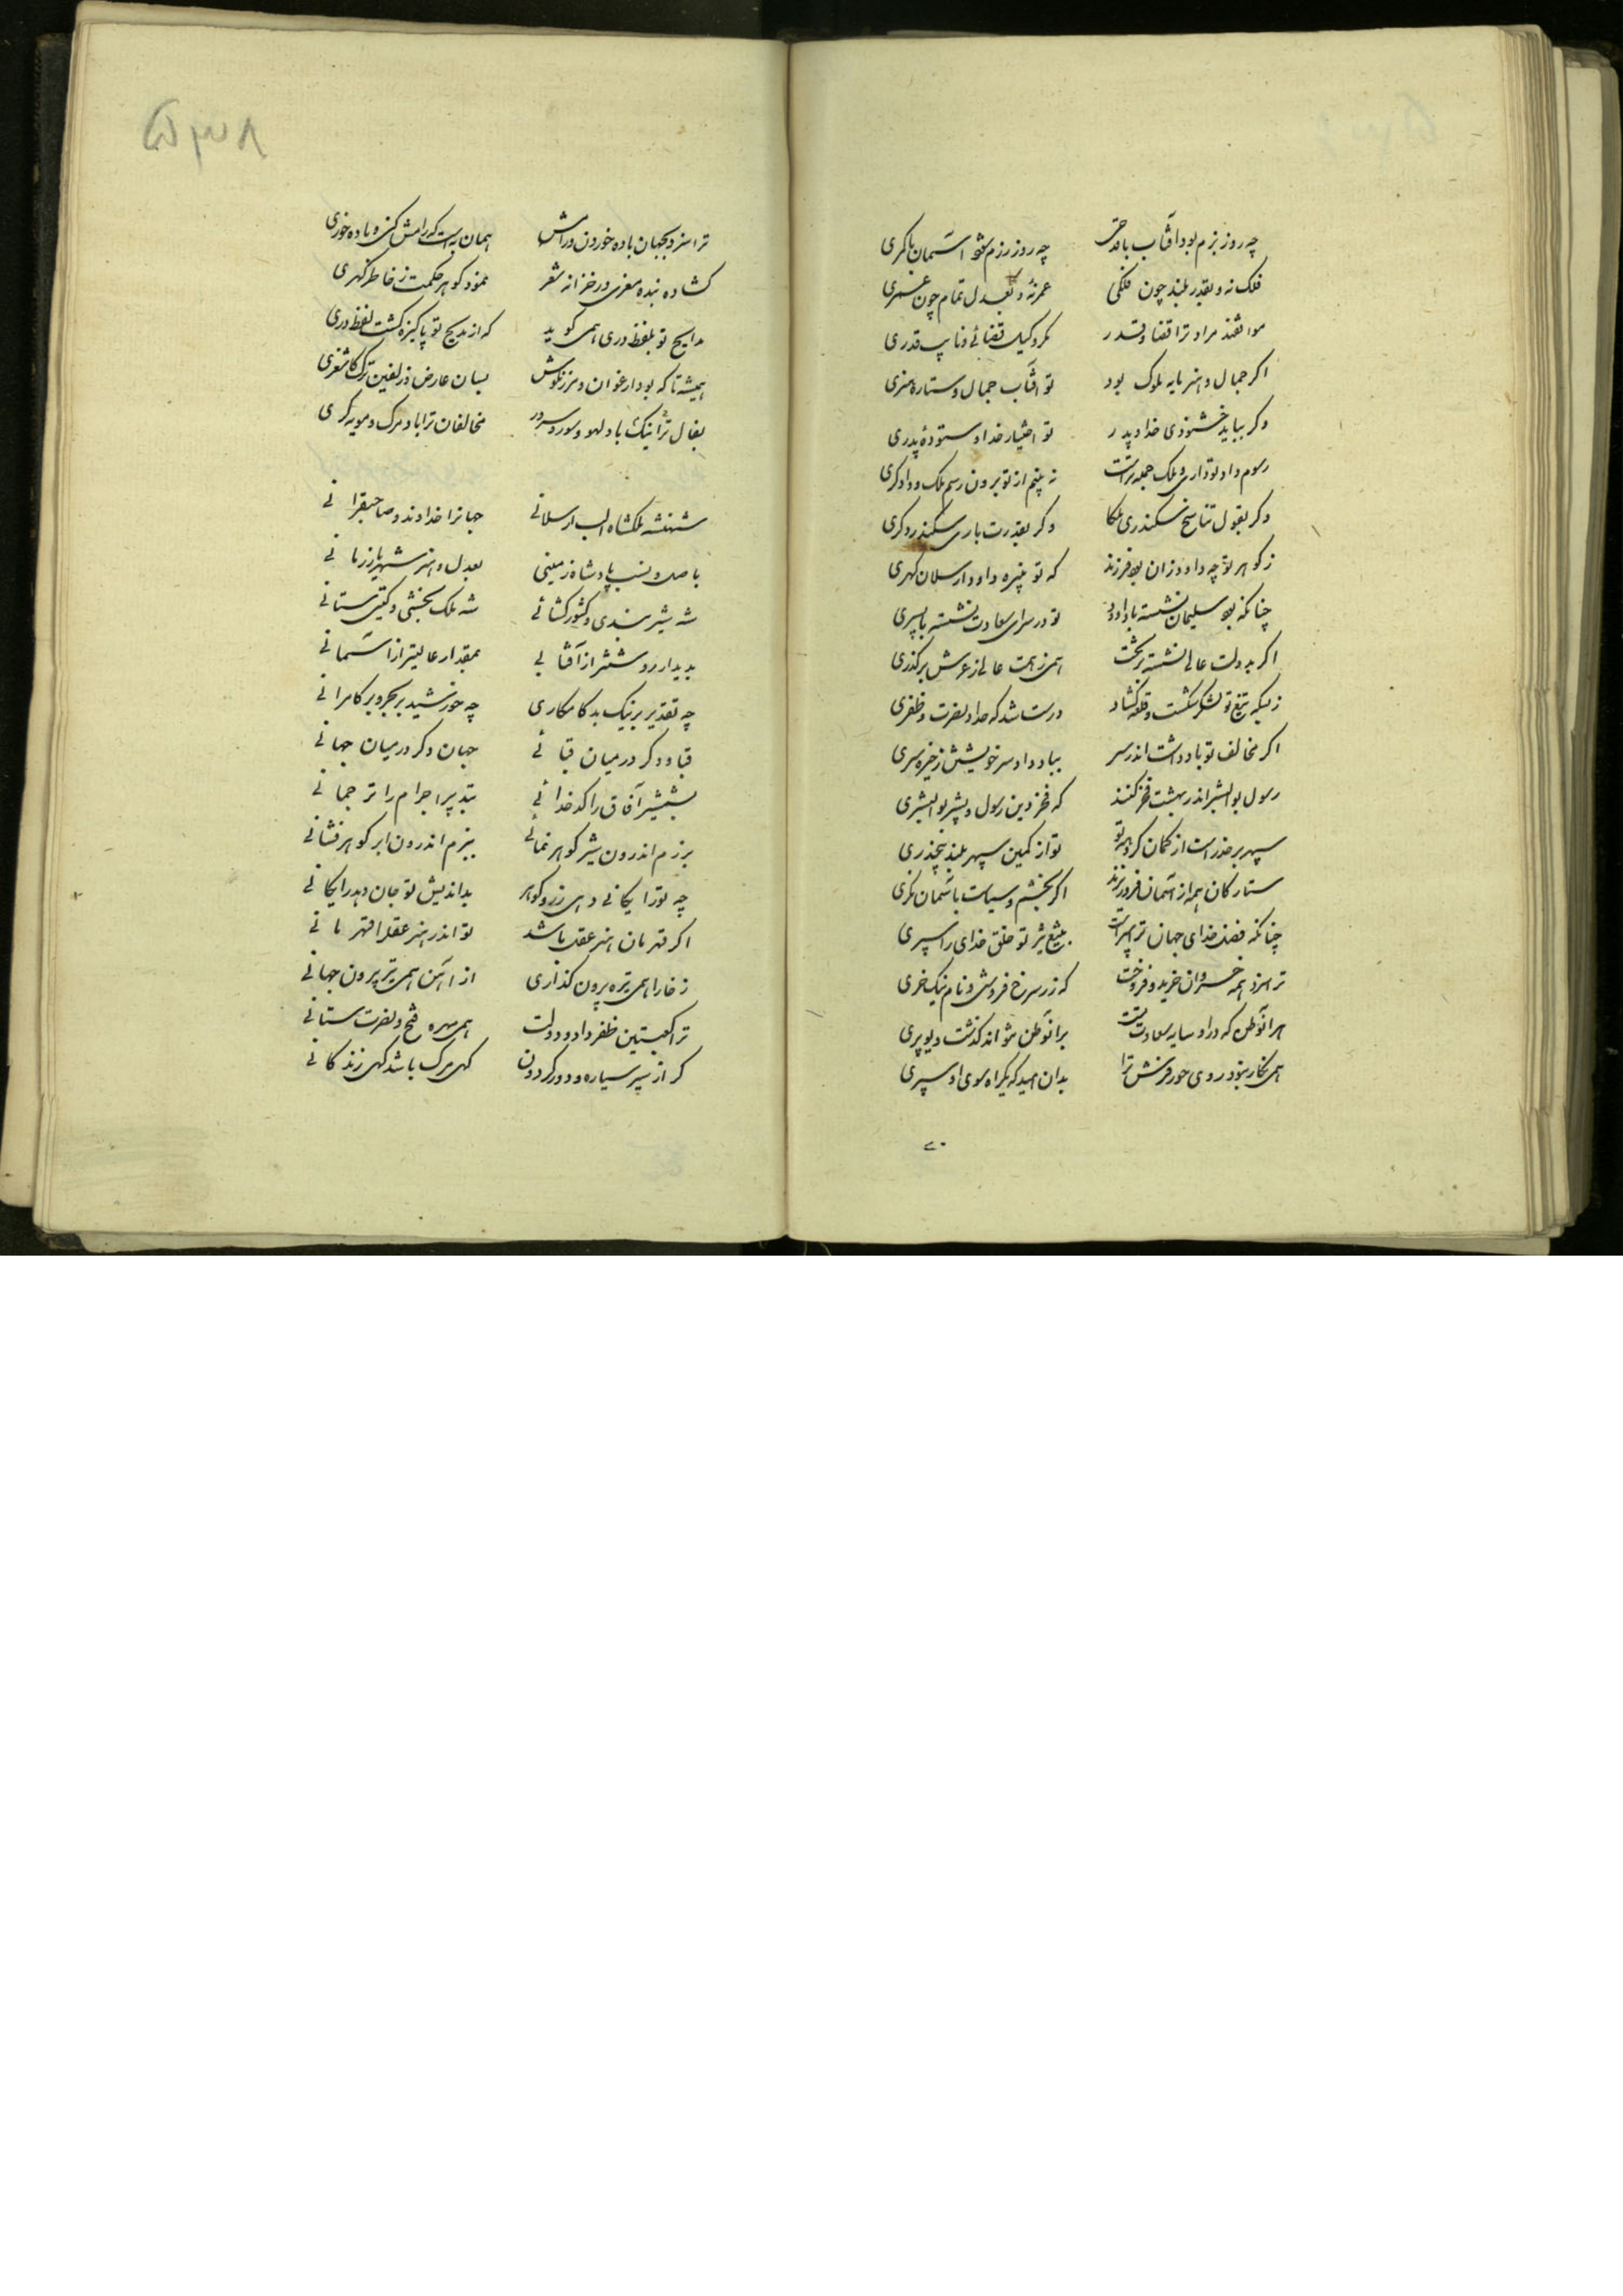 چه روز بزم بود آفتاب با قدحی چه روز رزم شود آسمان با کمری
فلک نه و بقدر بلند چون فلکی عمر نه و بعدل تمام چون عمری
موافقند مراد ترا قضا و قدر مگر وکیل قضائی و نایب قدری
اکر جمال و هنر مایه ملوک بود تو آفتاب جمال و ستاره هنری
وکر بباید خشنودی خدا و پدر تو اختیار خدا و ستودهٔ پدری
رسوم داد تو داری و ملک جمله تراست نه بینم از تو برون رسم ملک و دادکری
وکر بقول تناسخ سکندری ملکا وکر بقدرت باری سکندر دکری
ز کوهر تو چه داود زان بود فرزند که تو نبیره داود ارسلان کهری
چنانکه بود سلیمان نشسته با داود تو در سرای سعادت نشسته با پسری
اکر بدولت عالی نشسته بر تخت همی ز همت عالی ز عرش برکذری
زبسکه تیغ تو لشکر شکست و قلعه کشاد درست شد که خداوند نصرت و ظفری
اکر مخالف تو باد داشت اندر سر بباد داد سر خویش از خیره سری
رسول بوالبشر اندر بهشت فخر کنند که فخر دین رسول و بشر بوالبشری
سپهر بر حذر است از کمان کروهه تو تو از کمین سپهر بلند بی حذری
ستارکان همه از آسمان فرو ریزند اکر بخشم و سیاست بآسمان نکری
چنانکه فضل خدای جهان ترا سپر است بتیغ تیز تو خلق خدای را سپری
ترا سزد همه خسروان خرید و فروخت که زر سرخ فروشی و نام نیک خری
هر آن وطن که درو سایه سعادت تست بر آن وطن نتواند کذشت دیو و پری
همی نکار بود روی حور فرش ترا بدان امید که یکراه سوی او سپری
۵۳۸
ترا سزد بجهان باده خوردن و رامش همان به است که رامش کنی و باده خوری
کشاده بنده معزی در خزانه شعر نمود کوهر حکمت ز خاطر کهری
مدایح تو بلفظ دری همی کوید که از مدیح تو پاکیزه کشت لفظ دری
همیشه تا که بود ارغوان و مرزنکوش بسان عارض و زلفین ترک کاشغری
بفال نیک ترا باد لهو و سور و سرور مخالفان ترا باد مرک و مویه کری
شهنشه ملکشاه الب ارسلانی جهانرا خداوند و صاحبقرانی
باصل و نسب پادشاه زمینی بعدل و هنر شهریار زمانی
شه شیر بندی و کشور کشائی شه ملک بخشی و کیتی ستانی
بدیدار روشنتر از آفتابی بمقدار عالیتر از آسمانی
چه تقدیر بر نیک بد کامکاری چه خورشید بر بحر و بر کامرانی
قباد دکر در میان قبائی جهان دکر در میان جهانی
بشمشیر آفاق را کدخدائی بتدبیر اجرام را ترجمانی
برزم اندرون شیر کوهر نمائی ببزم اندرون ابر کوهر فشانی
چه تو رایکانی دهی زر و کوهر بداندیش تو جان دهد رایکانی
اکر قهرمان هنر عقل باشد تو اندر هنر عقل را قهرمانی
ز خارا همی تیره بیرون کذاری از آهن همی تیر بیرون جهانی
ترا کعبتین ظفر داد دولت همی مهره فتح و نصرت ستانی
کر از سیر سیاره و دور کردون کهی مرک باشد کهی زندکانی